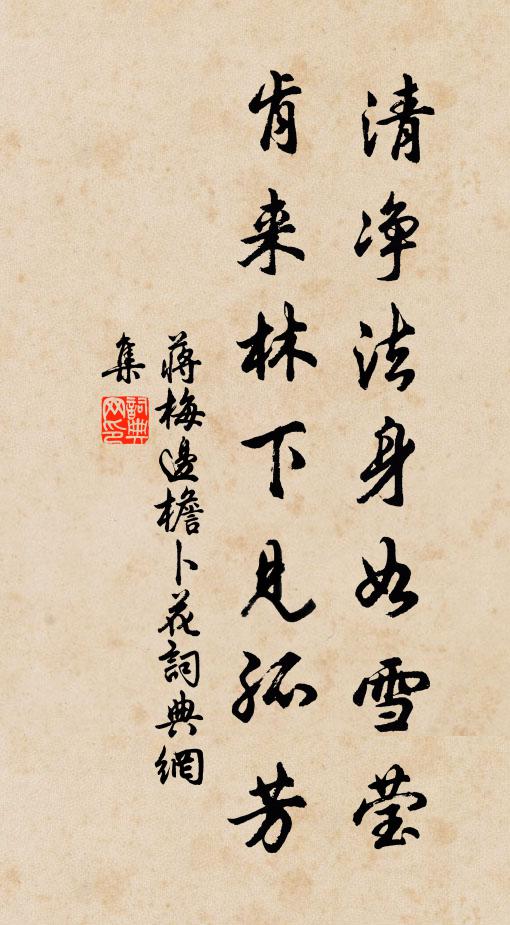 清净法身如雪莹
肯来林下见孤芳
蒋梅边檐卜花詞典網
集
詞典网印